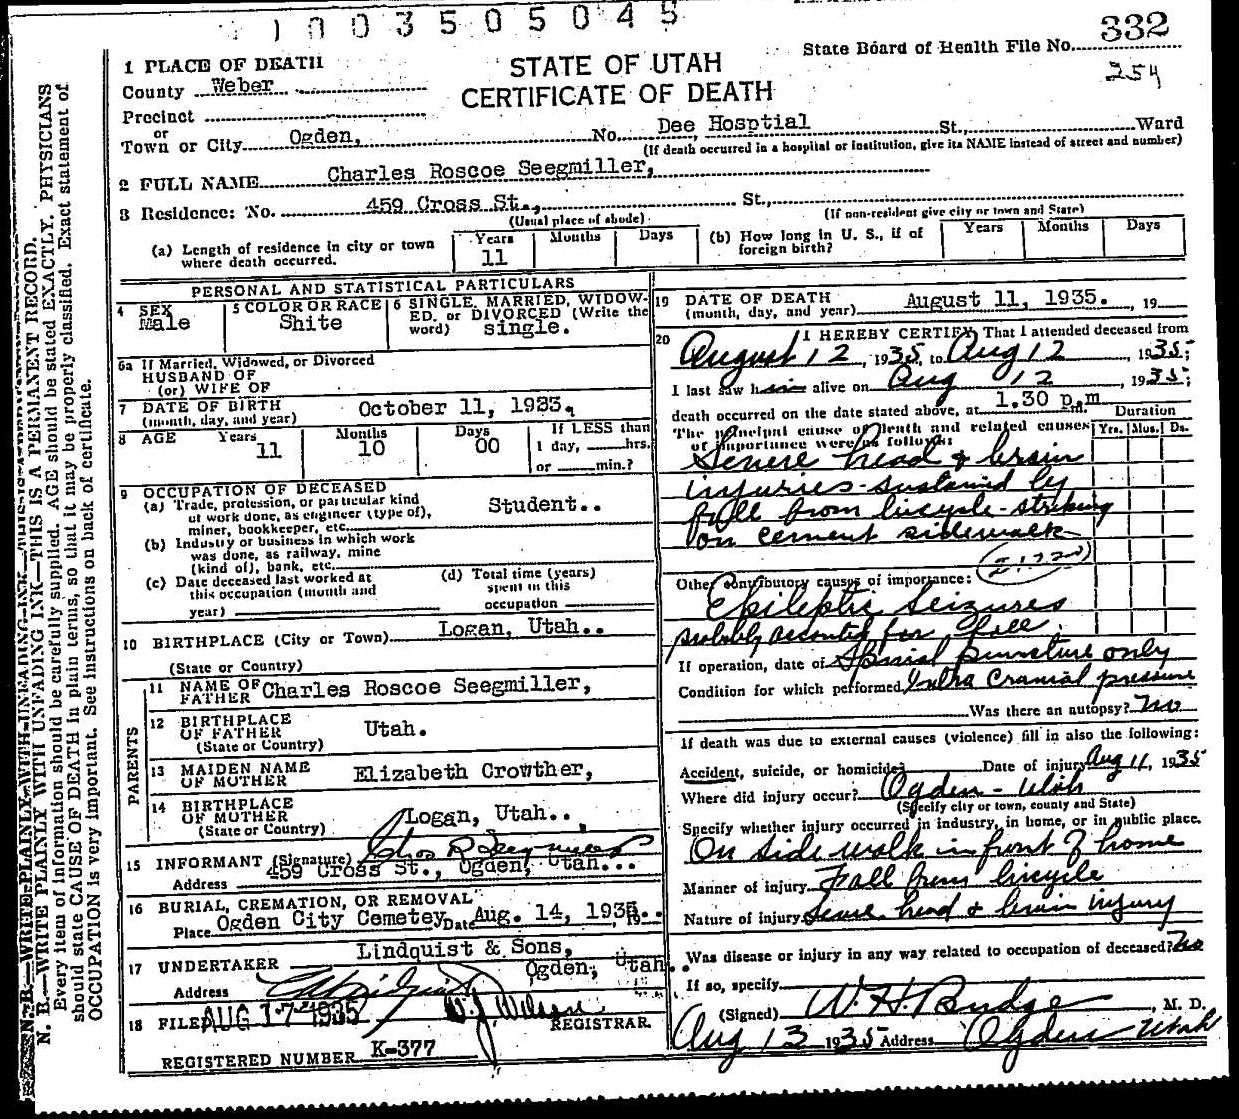 1003505045
332
State Board of Health File No.
254
1 PLACE OF DEATH
STATE OF UTAH
CERTIFICATE OF DEATH
County Weber
Precinct
or
Town or City Ogden, No. Dee Hosptial St., Ward
(If death occurred in a hospital or institution, give its NAME instead of street and number)
2 FULL NAME Charles Roscoe Seegmiller,
3 Residence: No. 459 Cross St., St.,
(Usual place of abode) (If non-resident give city or town and State)
(a) Length of residence in city or town where death occurred. Years 11 Months Days (b) How long in U. S., if of foreign birth? Years Months Days
PERSONAL AND STATISTICAL PARTICULARS
4 SEX Male
5 COLOR OR RACE Shite
6 SINGLE, MARRIED, WIDOWED. or DIVORCED (Write the word) single.
6a If Married, Widowed, or Divorced
HUSBAND OF
(or) WIFE OF
7 DATE OF BIRTH
(month, day, and year) October 11, 1923.
8 AGE Years 11 Months 10 Days 00 If LESS than
1 day, hrs.
or min.?
9 OCCUPATION OF DECEASED
(a) Trade, profession, or particular kind
of work done, as engineer (type of),
miner, bookkeeper, etc. Student..
(b) Industry or business in which work
was done, as railway, mine
(kind of), bank, etc.
(c) Date deceased last worked at
this occupation (month and
year)
(d) Total time (years)
spent in this
occupation
10 BIRTHPLACE (City or Town) Logan, Utah..
(State or Country)
PARENTS
11 NAME OF FATHER Charles Roscoe Seegmiller,
12 BIRTHPLACE OF FATHER Utah.
(State or Country)
13 MAIDEN NAME OF MOTHER Elizabeth Crowther,
14 BIRTHPLACE OF MOTHER Logan, Utah..
(State or Country)
15 INFORMANT (Signature) Chas R Seegmiller
Address 459 Cross St., Ogden, Utah...
16 BURIAL, CREMATION, OR REMOVAL
Place Ogden City Cemetey Date Aug. 14, 1935. 19
17 UNDERTAKER Lindquist & Sons,
Ogden, Utah.
Address
18 FILED AUG 17 1935 W. J. Wilson REGISTRAR.
REGISTERED NUMBER K-377
19 DATE OF DEATH
(month, day, and year) August 11, 1935. , 19
20 I HEREBY CERTIFY, That I attended deceased from
August 12, 1935, to Aug 12, 1935;
I last saw him alive on Aug 12, 1935;
death occurred on the date stated above, at 1.30 p.m m.
The principal cause of death and related causes
of importance were as follows:
Duration
Yrs. Mos. Ds.
Severe head & brain
injuries - sustained by
fall from bicycle - striking
on cement sidewalk
Other contributory causes of importance:
Epileptic Seizures
probably accounted for fall.
If operation, date of Spinal puncture only
Condition for which performed Intra Cranial pressure
Was there an autopsy? No
If death was due to external causes (violence) fill in also the following:
Accident, suicide, or homicide Date of injury Aug 11, 1935
Where did injury occur? Ogden - Utah
(Specify city or town, county and State)
Specify whether injury occurred in industry, in home, or in public place.
On Side walk in front of home
Manner of injury Fall from bicycle
Nature of injury Severe head & brain injury
Was disease or injury in any way related to occupation of deceased? No
If so, specify
(Signed) W. H. Budge, M. D.
Aug 13 1935 Address Ogden Utah
N. B.—WRITE PLAINLY WITH UNFADING INK—THIS IS A PERMANENT RECORD.
Every item of information should be carefully supplied. AGE should be stated EXACTLY. PHYSICIANS
should state CAUSE OF DEATH in plain terms, so that it may be properly classified. Exact statement of
OCCUPATION is very important. See instructions on back of certificate.